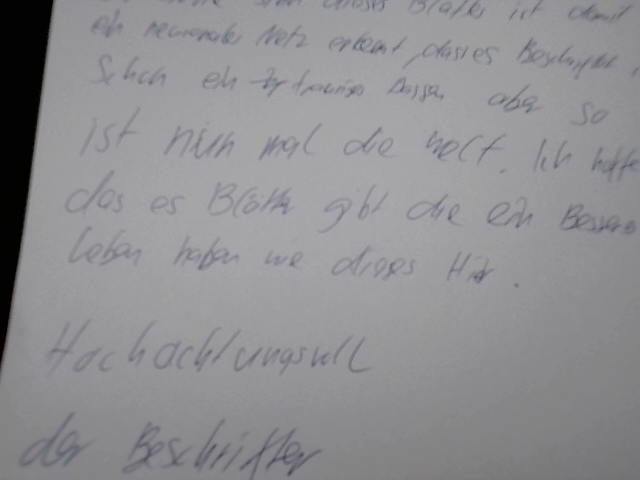 dieses Blattes ist damit
ein neuronales Netz erkennt, das es Beschriftet,
Schon ein trauriges Dassen aber so
ist nun mal die welt. Ich hoffe
das es Blätter gibt die ein Besseres
leben haben wie dieses Hir.
Hochachtungsvoll
der Beschrifter